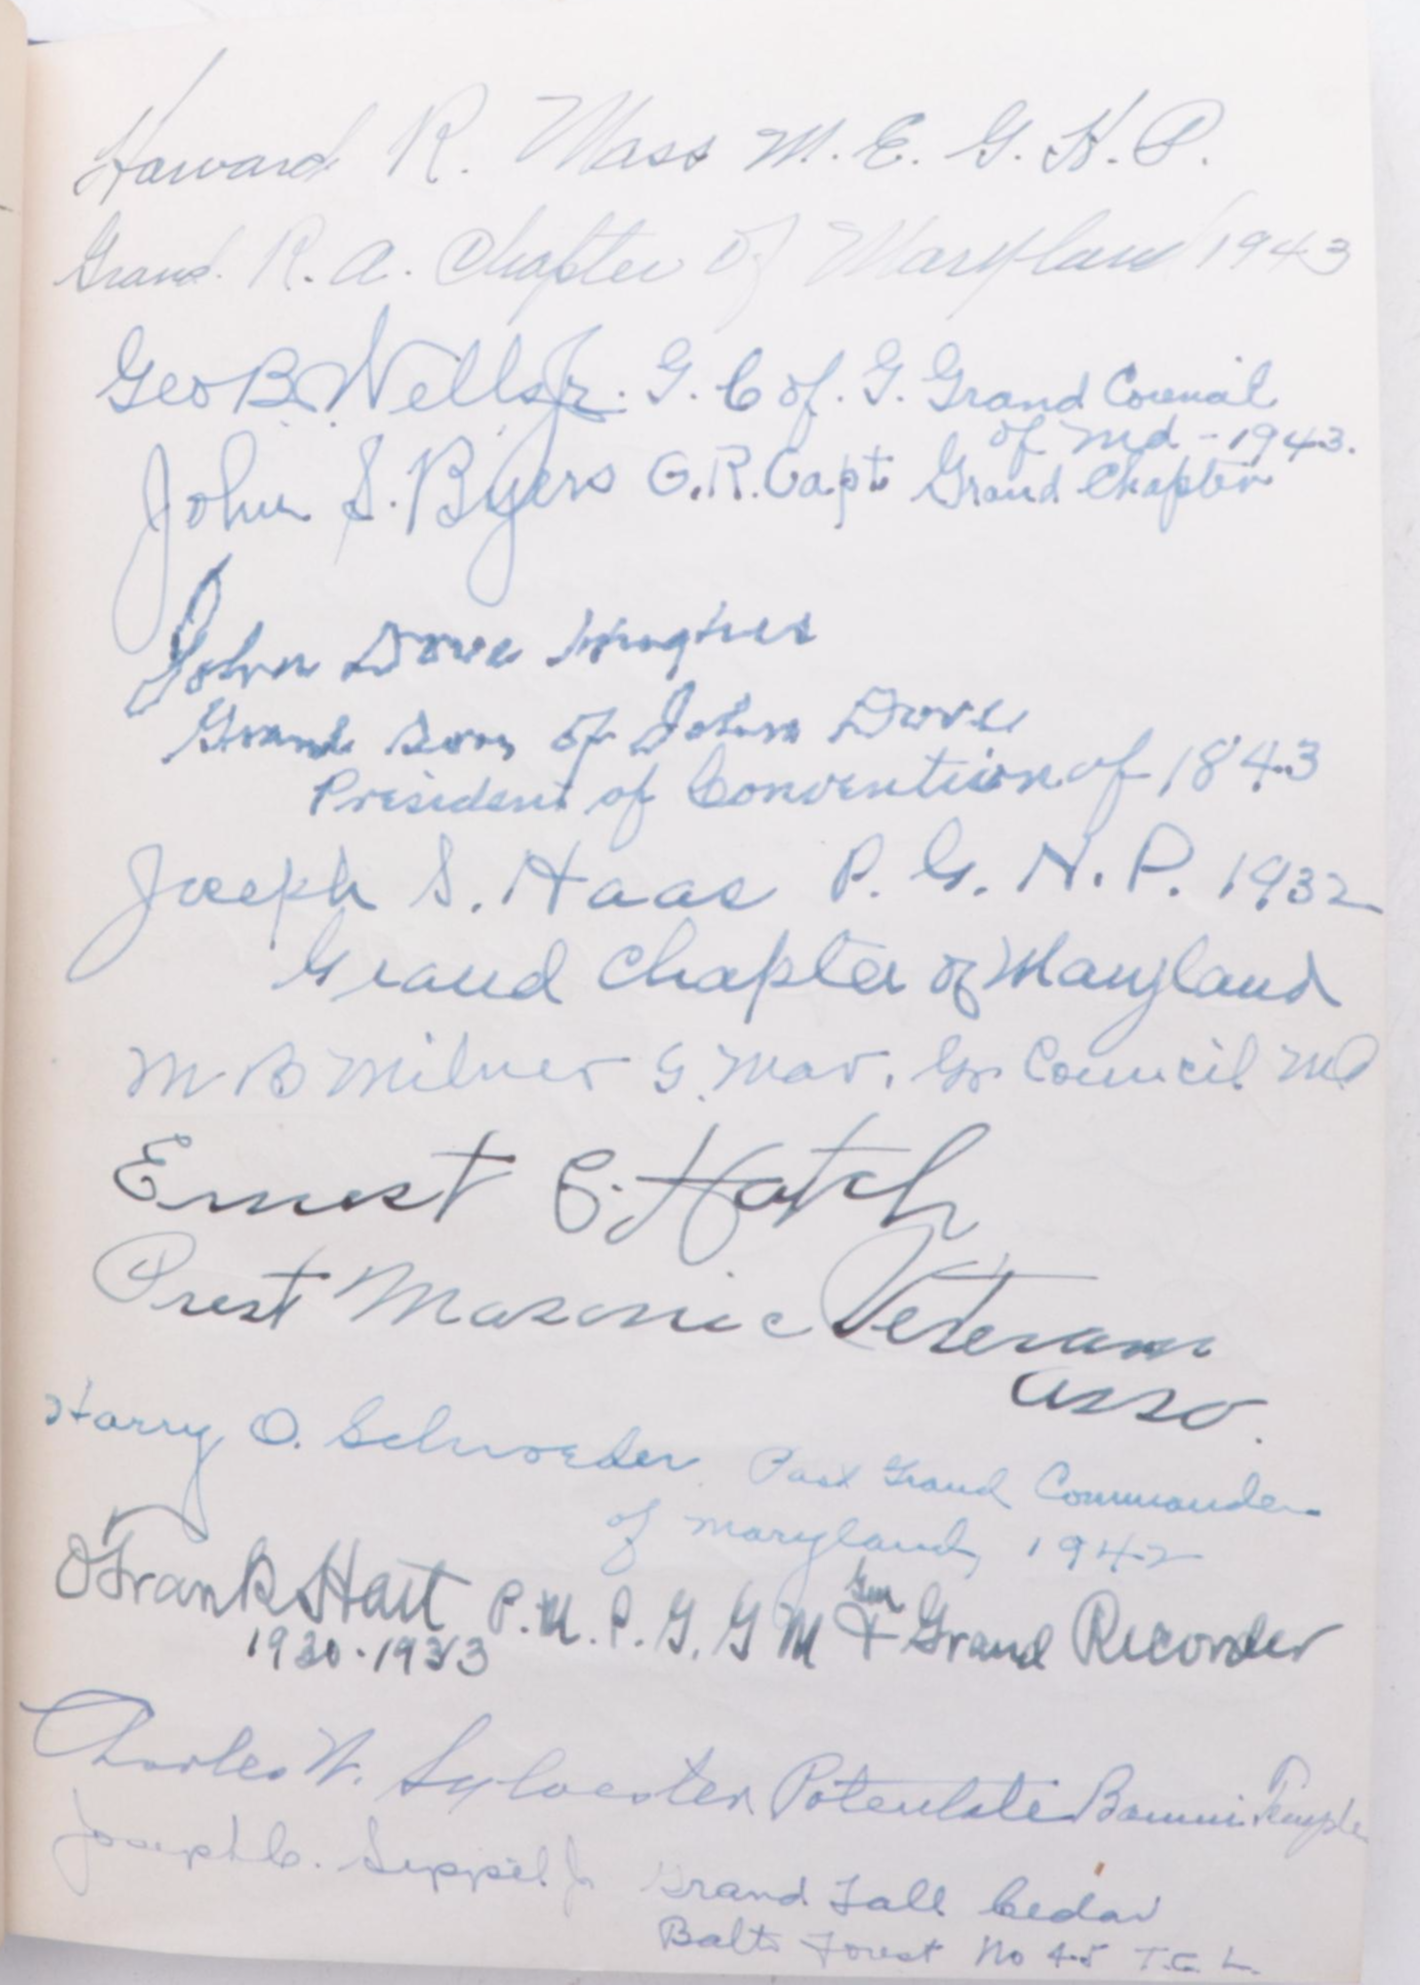 Howard R. Mass M. E. G. H. P.
Grand R. A. Chapter of Maryland 1943
Geo B. Wells Jr. G. C of. G. Grand Council
of Md - 1943.
John S. Byers G. R. Capt Grand Chapter
John Dove Hughes
Grand Son of John Dove
President of Convention of 1843
Joseph S. Haas P. G. H. P. 1932
Grand Chapter of Maryland
M B Milner G. Mar. Gr. Council Md
Ernest E. Hatch
Prest Masonic Veteran
Asso.
Harry O. Schroeder Past Grand Commander
of Maryland, 1942
Frank Hait P. M. P. G. G M Gen
+ Grand Recorder
1930 - 1933
Charles W. Sylvester Potentate Boumi Temple
Joseph C. Seppel Jr Grand Tall Cedar
Balto Forest No 45 T. C. L.